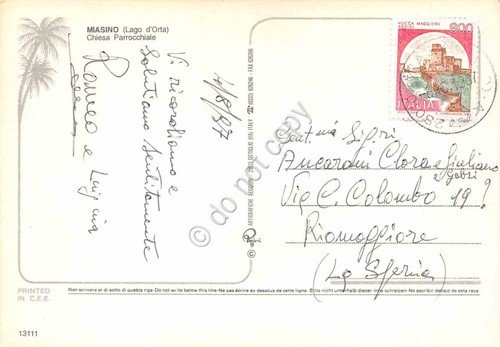 MIASINO (Lago d'Orta)
Chiesa Parrocchiale
Vi ricordiamo e
Salutiamo Sentitamente
Romeo e Luigina
7/8/87
do not copy
ROCCA MAGGIORE
ASSISI
800
ITALIA
Gent.mi Sigri.
Ancarani Clara e Giuliano
e Gabri
Via C. Colombo 19
Riomaggiore
(La Spezia)
PRINTED
IN C.E.E.
Non scrivere al di sotto di questa riga Do not write below this line-Ne pas écrire au-dessous de cette ligne. Bitte nicht unterhalb dieser linie schreiben. No escribir debajo de esta raya
13111